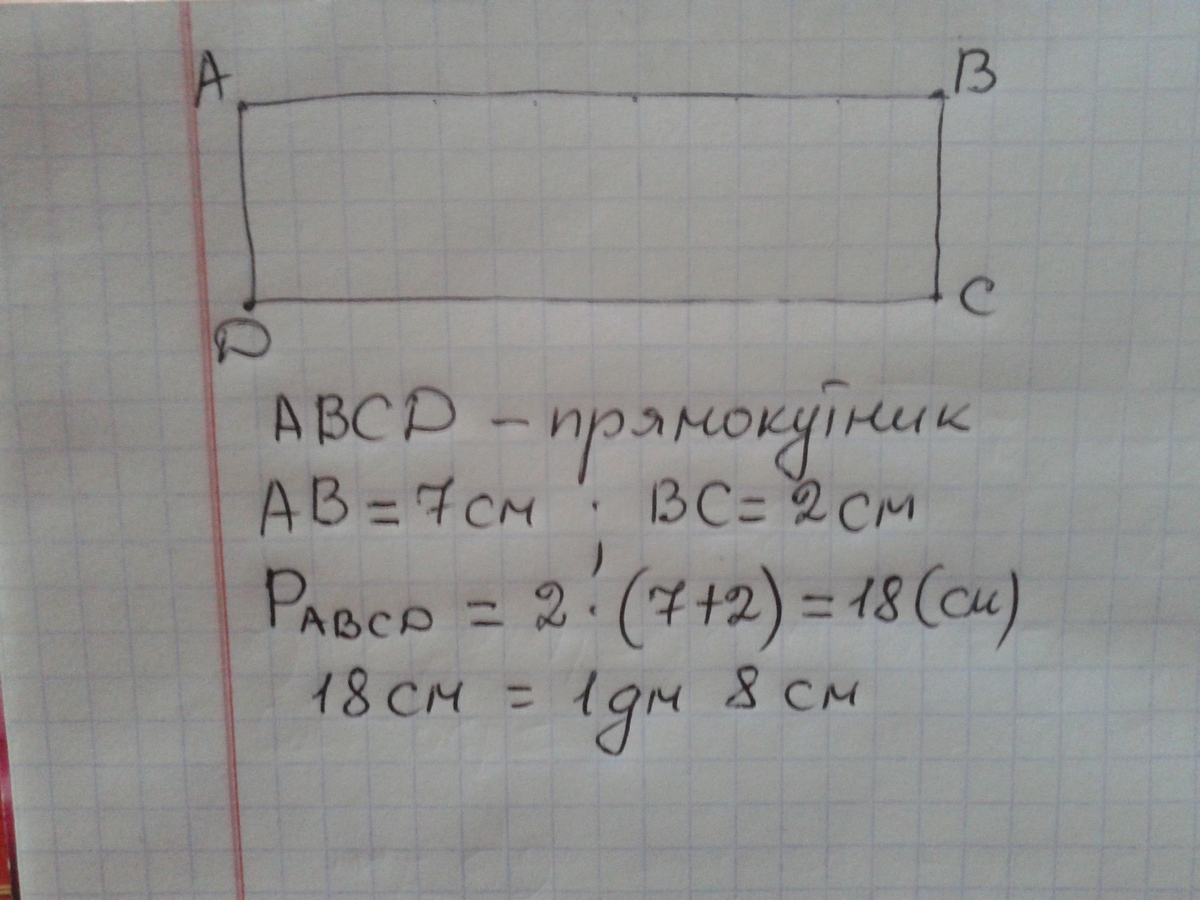 A B
D C
ABCD - прямокутник
AB = 7 см ; BC = 2 см
PABCD = 2 · (7+2) = 18 (см)
18 см = 1 дм 8 см